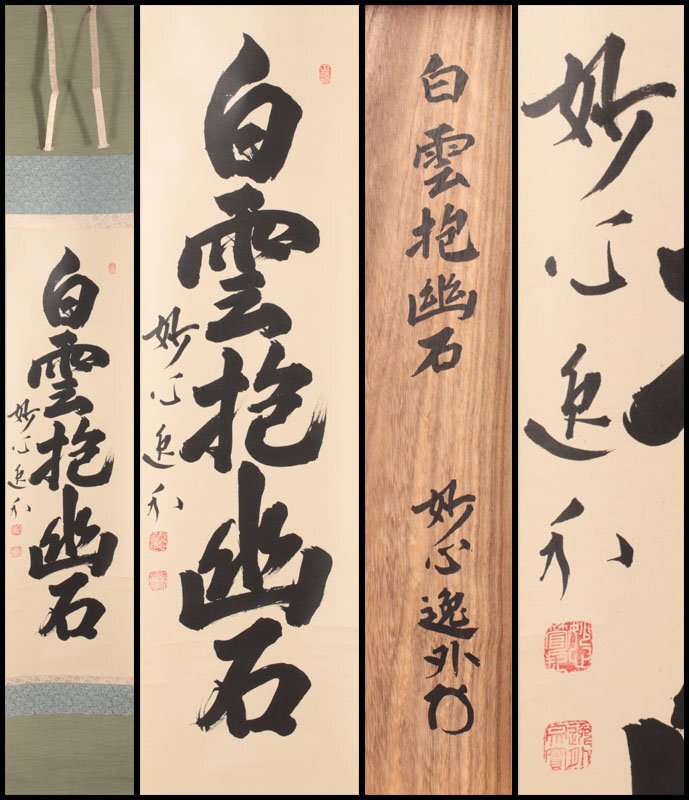 白雲抱幽石
妙心逸外
白雲抱幽石
妙心逸外
白雲抱幽石
妙心逸外
妙心逸外